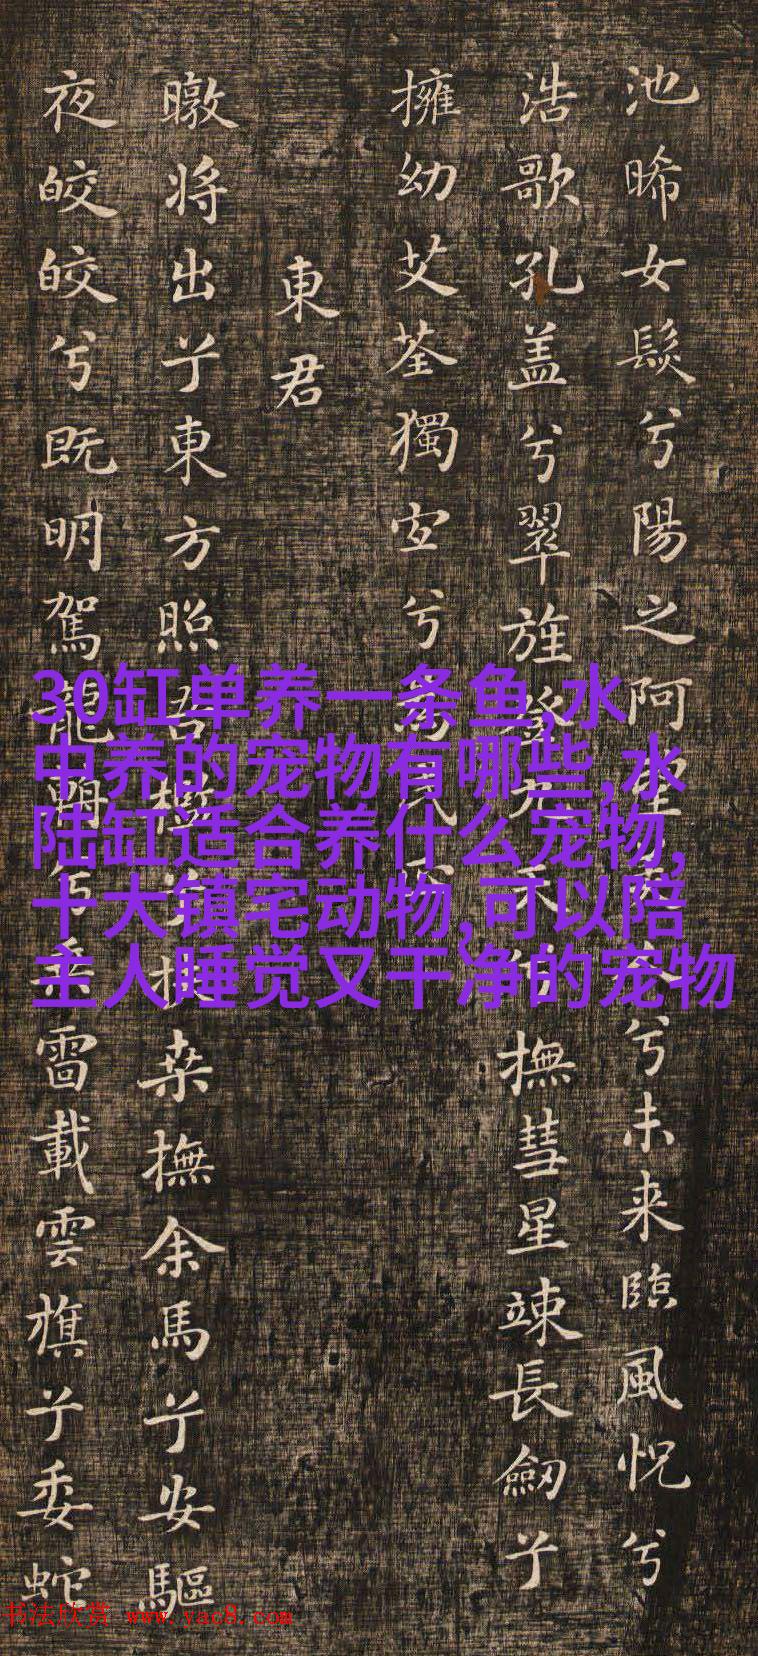 池晞女髮兮陽之阿
兮未来臨風怳兮
浩歌孔盖兮翠旍
撫彗星竦長劔兮
擁幼艾荃獨宜兮
東君
暾将出兮東方照吾檻
桒撫余馬兮安驅
夜皎皎兮既明駕龍輈兮乗
雷載雲旗兮委蛇
30缸单养一条鱼,水
中养的宠物有哪些,水
陆缸适合养什么宠物,
十大镇宅动物,可以陪
主人睡觉又干净的宠物
书法欣赏 www.yac8.com